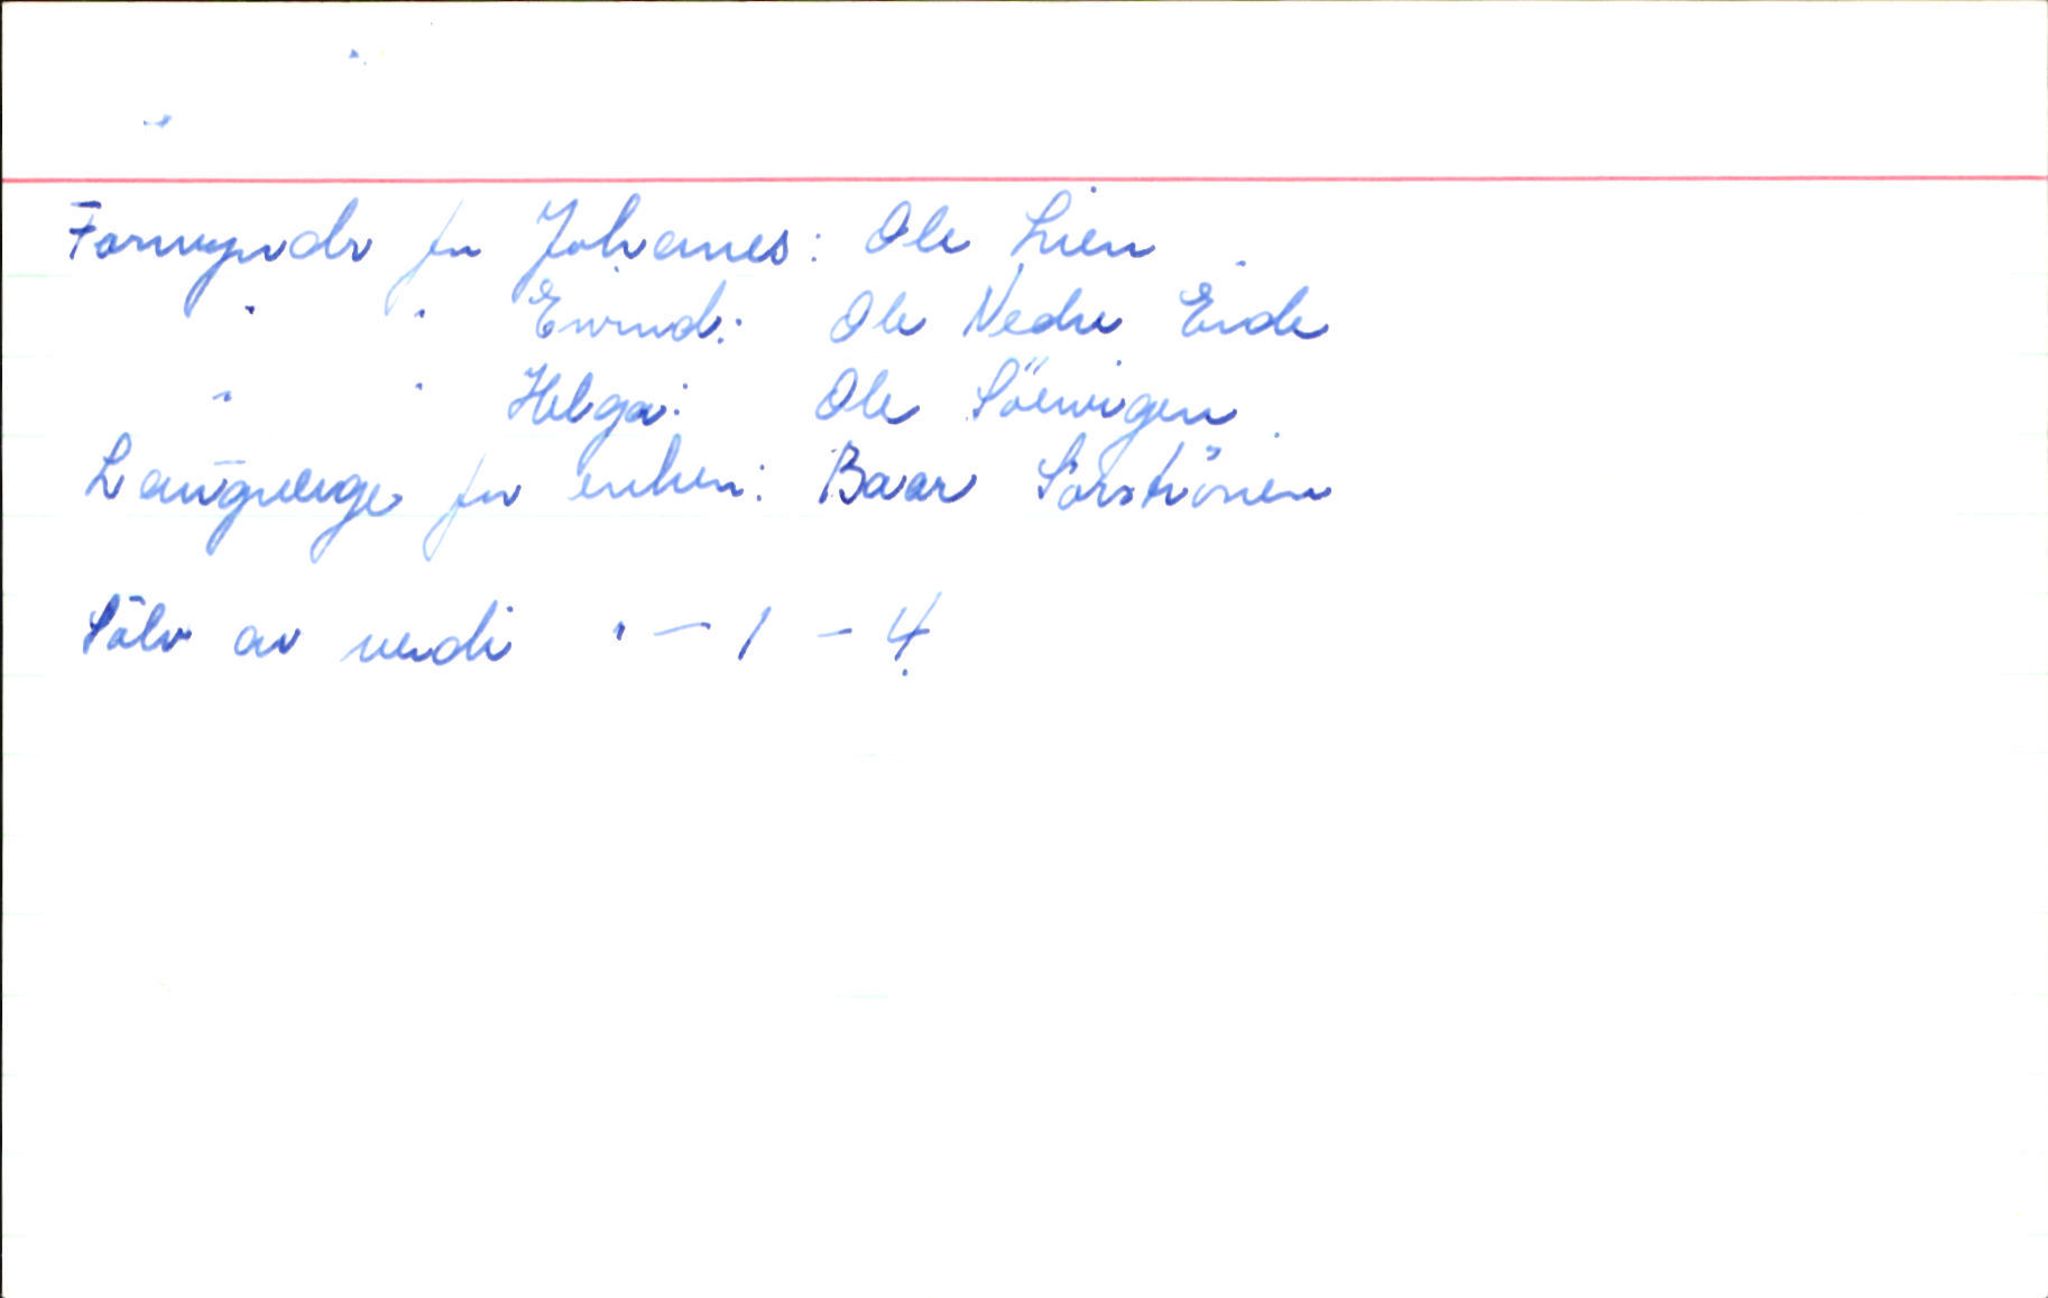 Formyndr for Johannes: Ole Lien
" " Eivind: Ole Nedre Eide
" " Helga: Ole Söevigen
Laugverge for enken: Baar
Sölv av verdi " - 1 - 4